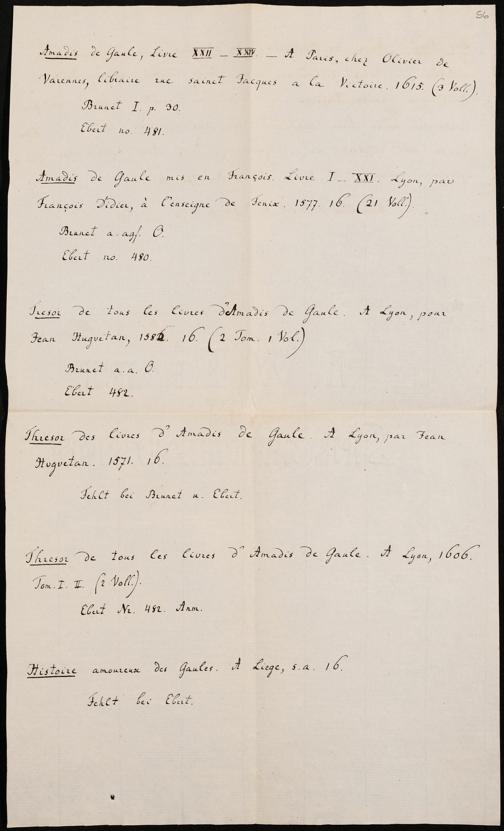 56
Amadis de Gaule, Livre XXII – XXIV. – A Paris, chez Olivier de
Varennes, libraire rue sainct Jacques a la Victoire. 1615. (3 Voll.).
Brunet I. p. 30.
Ebert no. 481.
Amadis de Gaule mis en François. Livre I – XXI. Lyon, par
François Didier, à l'enseigne de Fenix. 1577. 16. (21 Voll.).
Brunet a. a. O.
Ebert no. 480.
Tresor de tous les livres d'Amadis de Gaule. A Lyon, pour
Jean Huguetan, 1582. 16. (2 Tom. 1 Vol.)
Brunet a. a. O.
Ebert 482.
Thresor des livres d'Amadis de Gaule. A Lyon, par Jean
Huguetan. 1571. 16.
Fehlt bei Brunet u. Ebert.
Thresor de tous les livres d'Amadis de Gaule. A Lyon, 1606.
Tom. I. II. (2 Voll.).
Ebert Nr. 482. Anm.
Histoire amoureux des Gaules. A Liege, s. a. 16.
Fehlt bei Ebert.